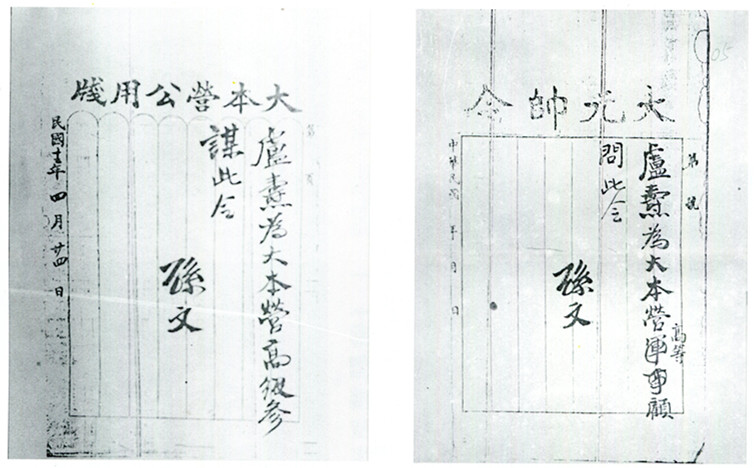 大本營公用牋
盧燾為大本營高級參
謀此令
孫文
民國十年四月廿四日
大元帥令
第 號
盧燾為大本營高等軍事顧
問此令
孫文
中華民國 年 月 日
05